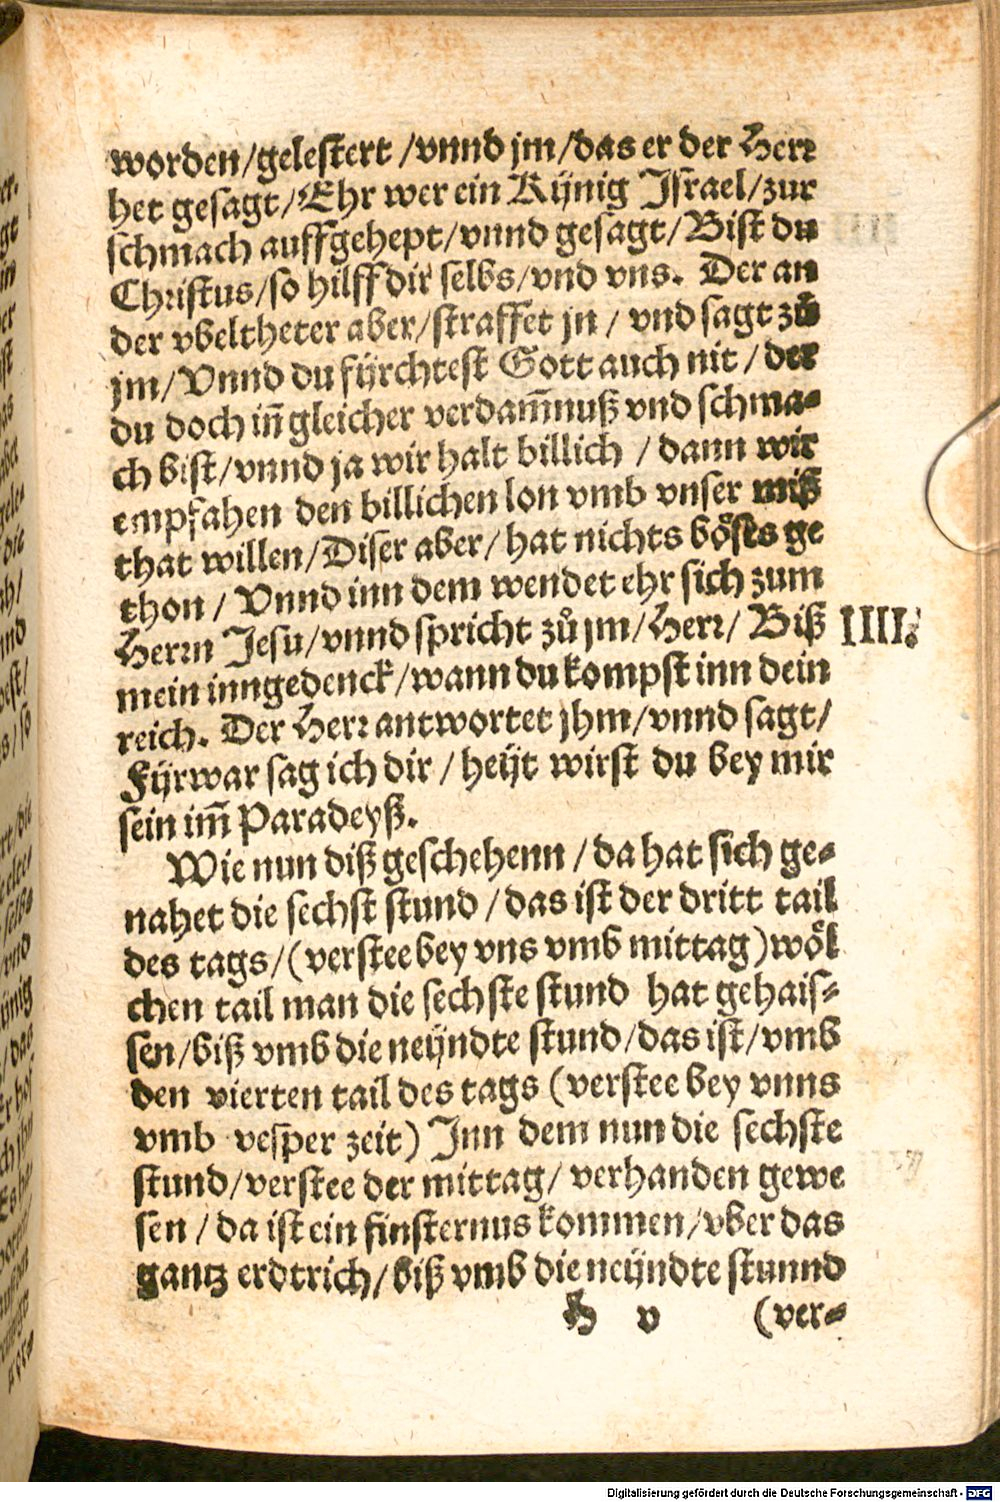 worden/gelestert/vnnd jm/das er der Herr
het gesagt/Ehr wer ein Kÿnig Israel/zur
schmach auffgehept/vnnd gesagt/Bist du
Christus/so hilff dir selbs/vnd vns. Der an
der vbeltheter aber/straffet jn/ vnd sagt zů
jm/Vnnd du fÿrchtest Gott auch nit/der
du doch iñ gleicher verdam̃nuß vnd schma-
ch bist/vnnd ja wir halt billich/dann wir
empfahen den billichen lon vmb vnser miß
that willen/Diser aber/hat nichts böses ge
thon/Vnnd inn dem wendet ehr sich zum
Herrn Jesu/vnnd spricht zů jm/Herr/Biß
IIII.
mein inngedenck/wann du kompst inn dein
reich. Der Herr antwortet jhm/vnnd sagt/
Fÿrwar sag ich dir/heÿt wirst du bey mir
sein im̃ Paradeyß.
Wie nun diß geschehenn/da hat sich ge-
nahet die sechst stund/das ist der dritt tail
des tags/(verstee bey vns vmb mittag)wöl
chen tail man die sechste stund hat gehais-
sen/biß vmb die neÿndte stund/das ist/vmb
den vierten tail des tags (verstee bey vnns
vmb vesper zeit) Inn dem nun die sechste
stund/verstee der mittag/ verhanden gewe
sen/da ist ein finsternus kommen/vber das
gantz erdtrich/biß vmb die neÿndte stunnd
H v (ver-
Digitalisierung gefördert durch die Deutsche Forschungsgemeinschaft - DFG